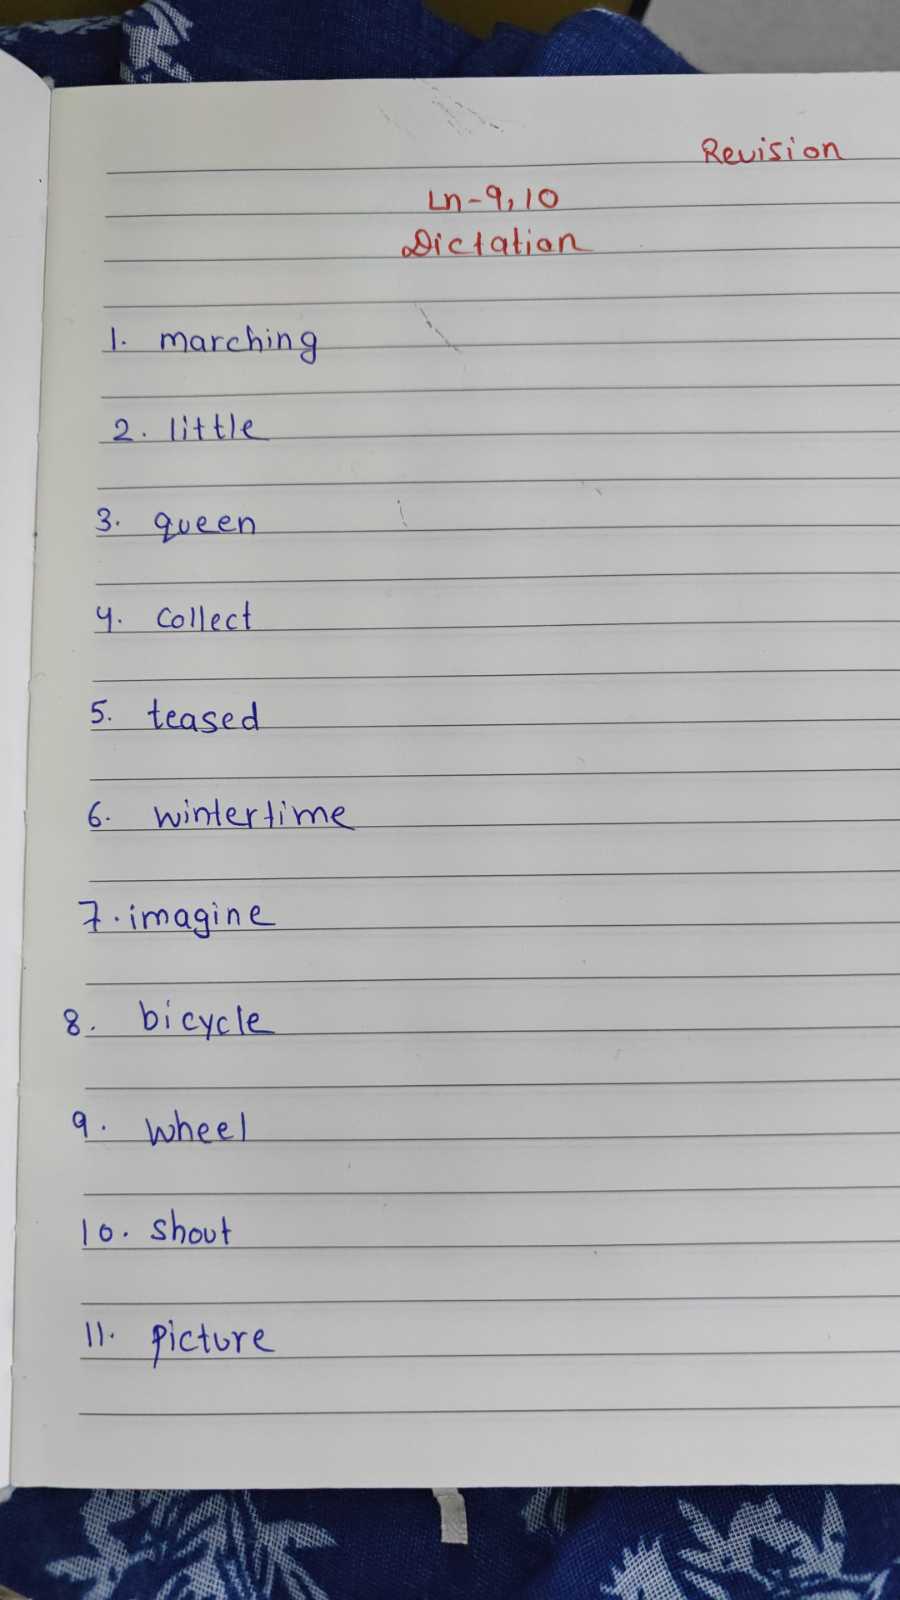 Revision
Ln-9,10
Dictation
1. marching
2. little
3. queen
4. collect
5. teased
6. wintertime
7. imagine
8. bicycle
9. wheel
10. shout
11. picture